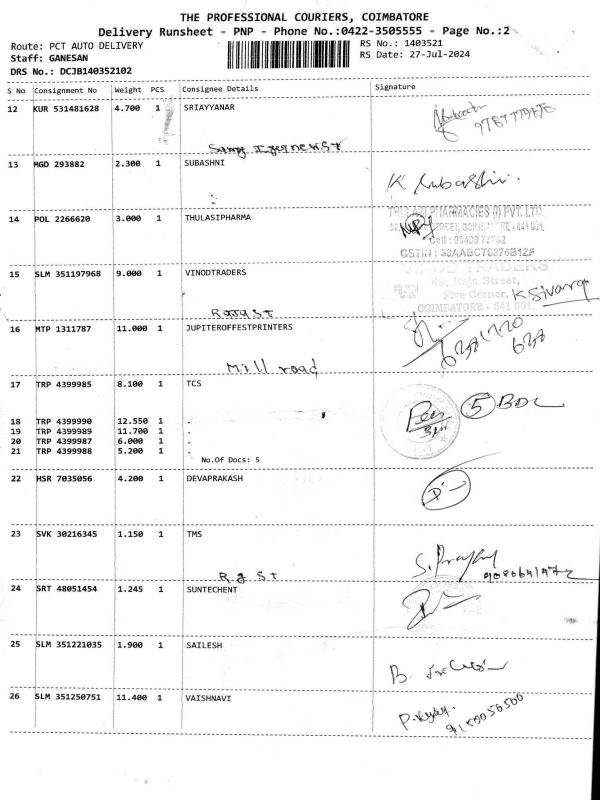 THE PROFESSIONAL COURIERS, COIMBATORE
Delivery Runsheet - PNP - Phone No.:0422-3505555 - Page No.:2
Route: PCT AUTO DELIVERY RS No.: 1403521
Staff: GANESAN RS Date: 27-Jul-2024
DRS No.: DCJB140352102
S No Consignment No Weight PCS Consignee Details Signature
12 KUR 531481628 4.700 1 SRIAYYANAR
13 MGD 293882 2.300 1 SUBASHNI
K Subashni.
14 POL 2266620 3.000 1 THULASIPHARMA
THULASI PHARMACIES (I) PVT. LTD.,
15 SLM 351197968 9.000 1 VINODTRADERS
VINOD TRADERS
89, Raja Street,
Five Corner, K Sivaraj
COIMBATORE - 641 001.
Raja St
16 MTP 1311787 11.000 1 JUPITEROFFESTPRINTERS
Mill road
17 TRP 4399985 8.100 1 TCS
5 BOX
18 TRP 4399990 12.550 1 .
19 TRP 4399989 11.700 1 .
20 TRP 4399987 6.000 1 .
21 TRP 4399988 5.200 1 .
No.Of Docs: 5
22 HSR 7035056 4.200 1 DEVAPRAKASH
23 SVK 30216345 1.150 1 TMS
R.g. St
24 SRT 48051454 1.245 1 SUNTECHENT
25 SLM 351221035 1.900 1 SAILESH
26 SLM 351250751 11.400 1 VAISHNAVI